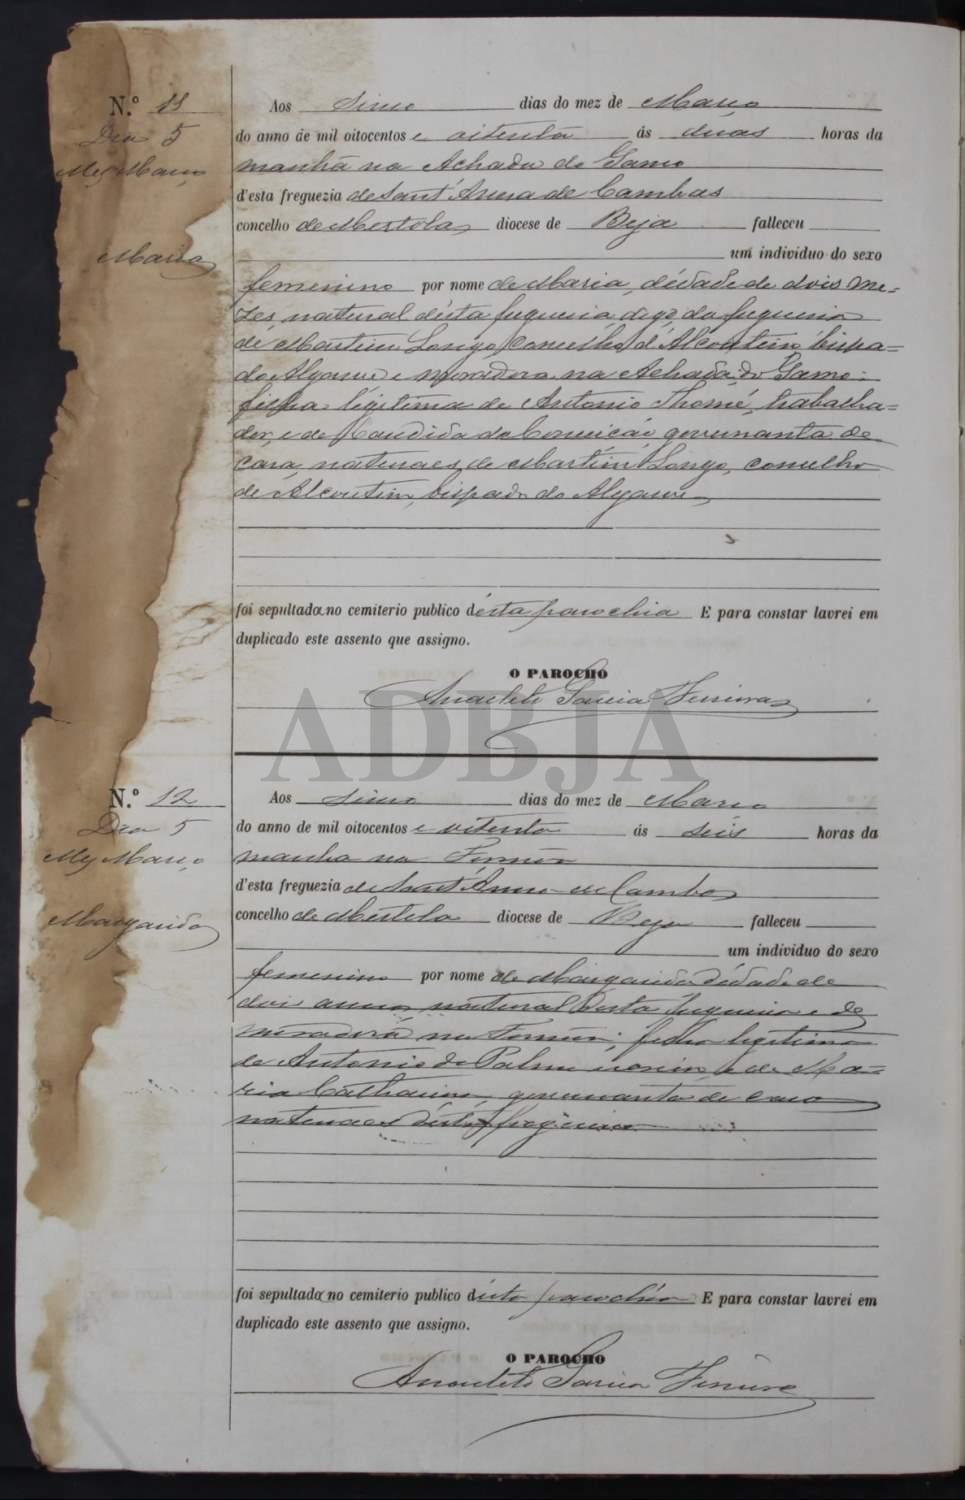 N.º 11
Dia 5
Mez Março
Maria
Aos Sinco dias do mez de Março
do anno de mil oitocentos e oitenta ás duas horas da
manhã na Achada do Gamo
d'esta freguezia de Sant'Anna de Cambas
concelho de Mertola diocese de Beja falleceu
um individuo do sexo
femenino por nome de Maria, d'edade de dois me=
zes, natural d'esta freguezia digo da freguezia
de Martim Longo, concelho d'Alcoutim bispa=
do Algarve e moradora na Achada do Gamo:
filha legitima de Antonio Thomé, trabalha=
dor, e de Candida da Conceicão governanta de
caza, naturaes de Martim Longo, concelho
de Alcoutim, bispado do Algarve
foi sepultada no cemiterio publico d'esta parochia E para constar lavrei em
duplicado este assento que assigno.
O PAROCHO
Anacleto Garcia Ferreira
ADBJA
N.º 12
Dia 5
Mez Março
Margarida
Aos Sinco dias do mez de Março
do anno de mil oitocentos e oitenta ás seis horas da
manha na
d'esta freguezia de Sant'Anna de Cambas
concelho de Mertola diocese de Beja falleceu
um individuo do sexo
femenino por nome de Margarida d'edade de
dois annos natural desta freguezia e
moradora na filha legitima
de Antonio de Palma e de Ma=
ria Catharina, governanta de caza
naturaes d'esta freguezia
foi sepultada no cemiterio publico d'esta parochia E para constar lavrei em
duplicado este assento que assigno.
O PAROCHO
Anacleto Garcia Ferreira